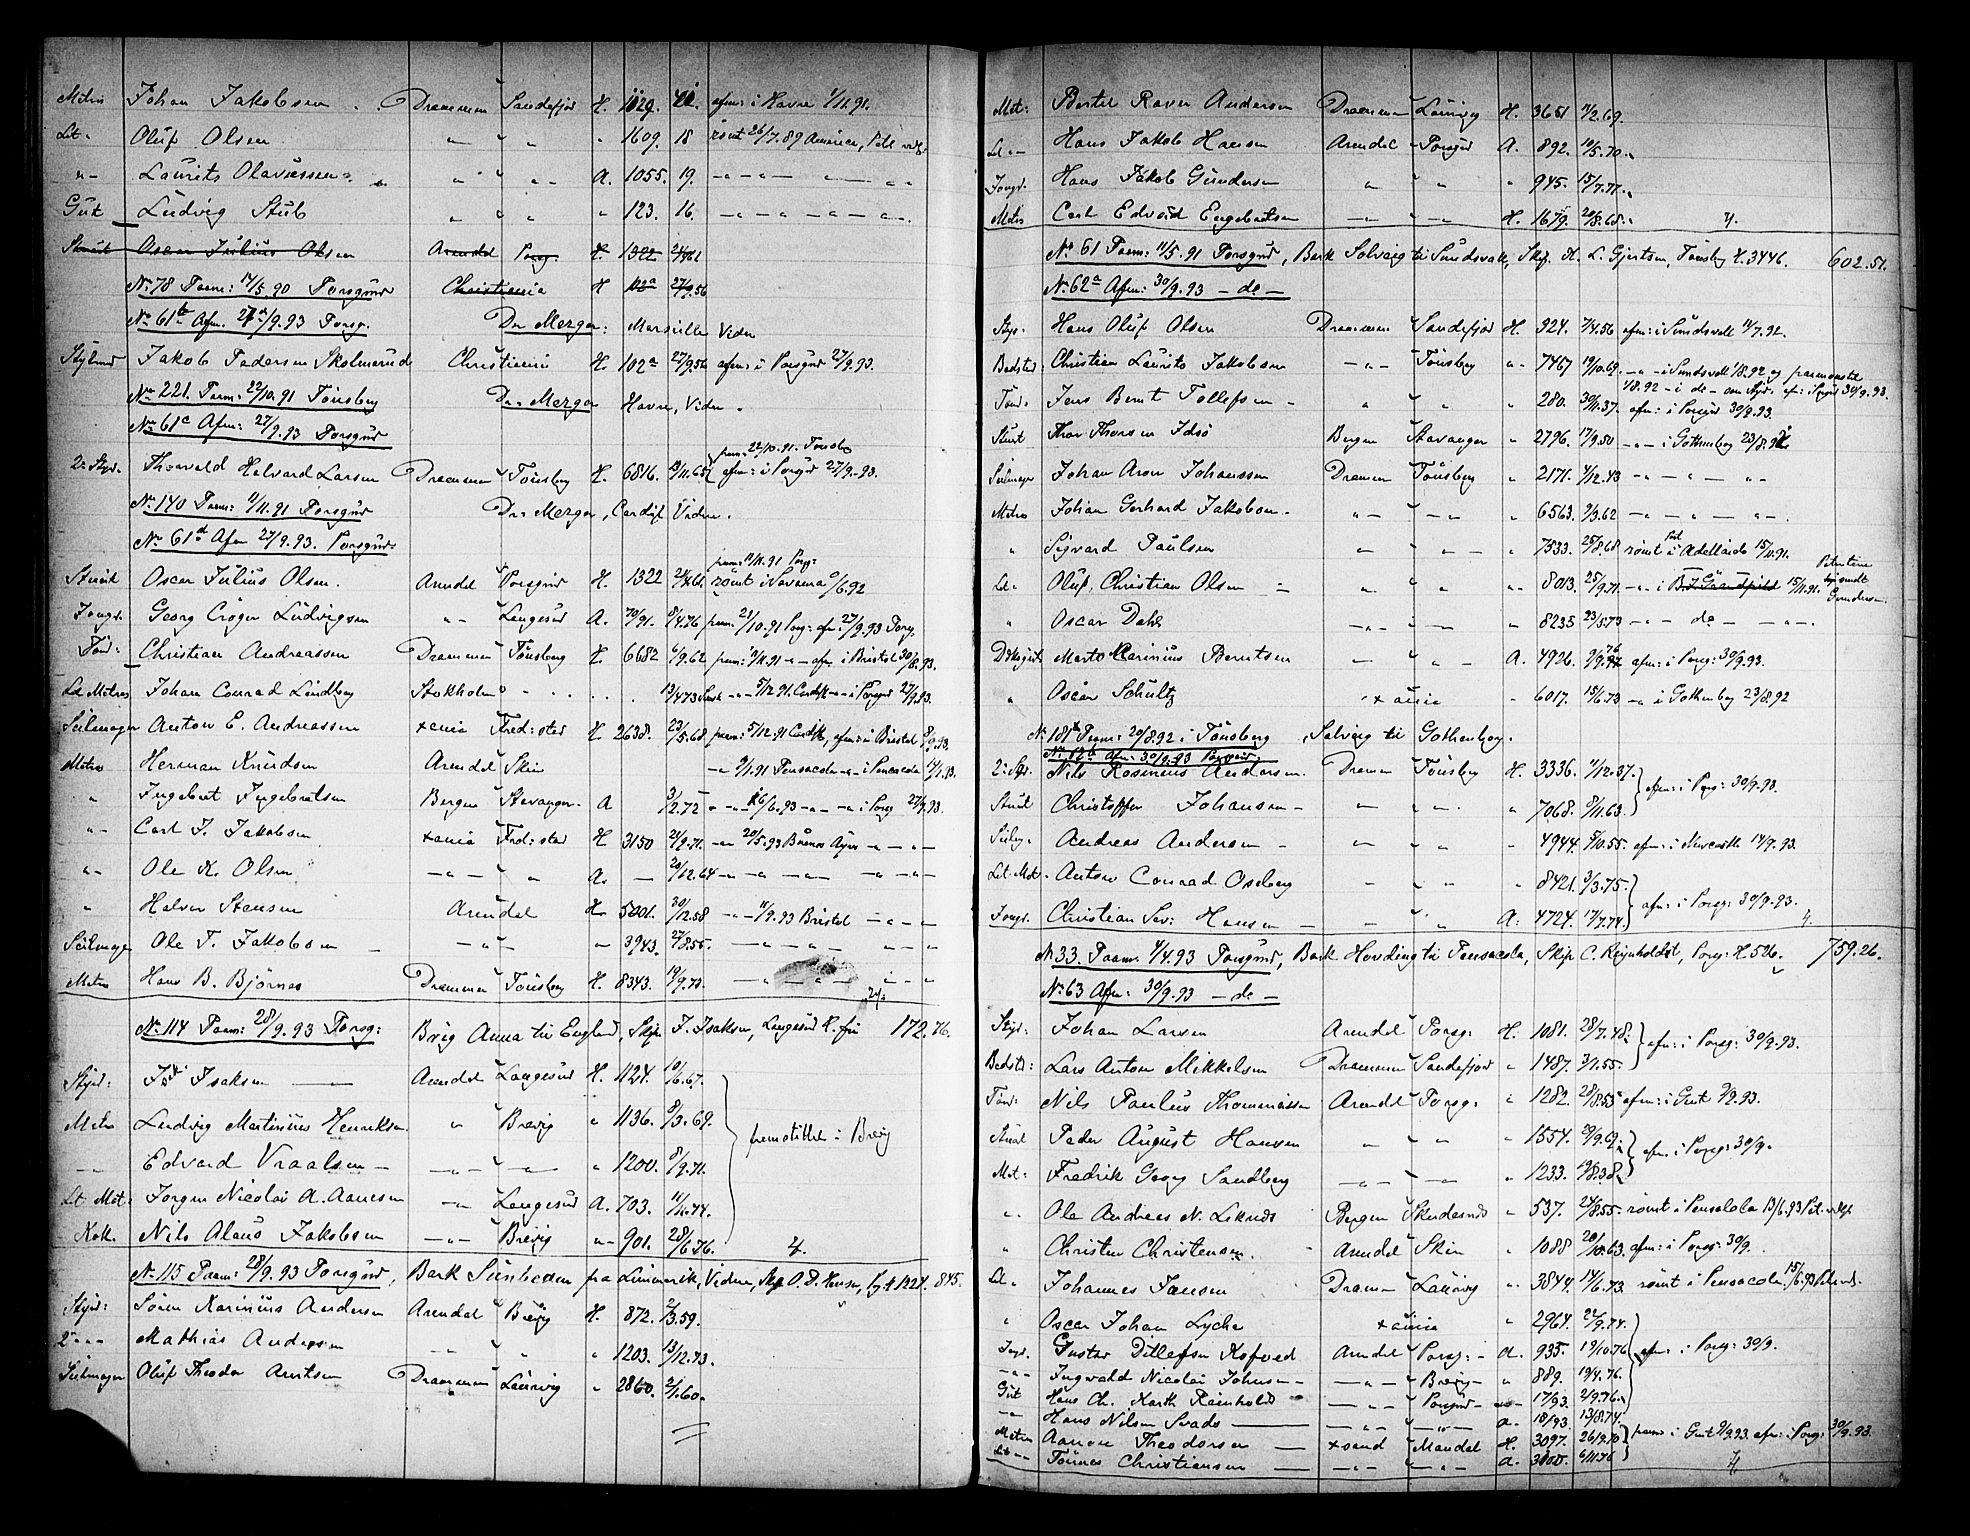 Matros Johan Jakobsen Drammen Sandefjord H. 1029. afm: i Havre 1/11.91.
Let. Oluf Olsen " " " 1609. 18 rømt 26/7.89 America,
"- Laurits Olavessen " " A. 1055. 19. -"- -"-
Gut Ludvig Stub " " " 123. 16. -"- -"- -"-
Oscar Julius Olsen Arendal Porsg. H. 1322
No 78 Paam: 14/5.90 Porsgrund Christiania H 102a 27/9.56
No 61b Afm. 27/9.93 Porsg. Dr. Mezger: Marseille Viden
Styrmd Jakob Pedersen Skolmerud Christiania H. 102a 27/9.56 afm: i Porsgrd 27/9.93.
No 221. Paam: 22/10.91 Tönsberg Dr. Mezger Havre, Viden.
No 61c Afm: 27/9.93 Porsgrund
paam: 22/10.91. Tönsb
2. Styr. Thorvald Halvard Larsen Drammen Tönsberg H. 6816. afm: i Porsgrd 27/9.93.
No 140 Paam: 11/11.91 Porsgrund Dr. Mezger, Cardiff Viden.
No 61d Afm 27/9.93. Porsgrund
paam: 11/11.91 Porsg:
Stuert Oscar Julius Olsen. Arendal Porsgrund H. 1322 rømt i Savanna 6.92
Jungm. Georg Crøger Ludvigsen "- Langesund A. 79/91. 8/4.76 paam: 21/10.91 Porsg: afm: 27/9.93 Porsg.
Tömr: Christian Andreassen Drammen Tönsberg H. 6682 6/9.62 paam: 11/11.91 -"- afm: i Bristol 30/8.93.
Let Matros Johan Conrad Lindberg Stokholm 13/4.73 -"- 5/12.91. Cardiff -"- i Porsgrd 27/9.93.
Seilmager Anton E. Andreassen xania Fred:stad H 2638. 23/5.68 paam: 5/12.91 Cardiff, afm: i Bristol 8/9.93.
Matros Herman Knudsen Arendal Skien -"- 9/1.91 Pensacola -"- i Pensacola 14/1.93.
" Ingebret Ingebretsen Bergen Stavanger. A 3/12.72 -"- 16/6.93 -"- -"- i Porsg 27/9.93.
"- Carl J. Jakobsen xania Fred:stad H 3150 21/9.71. -"- 20/5.93 Buenos Ayres -"- -"-
"- Ole K. Olsen -"- " A. — 20/12.64 -"- -"- -"- -"- -"-
" Halvor Stensen Arendal H. 5001. 30/12.58 -"- 11/9.93 Bristol -"- -"-
Seilmager Ole T. Jakobsen -"- " 3943. 27/8.55. -"- -"- -"- -"-
Matros Hans B. Björnes Drammen Tönsberg H. 8343. 19/9.73. -"- -"- -"- "
No 114 Paam: 28/9.93 Porsg: Brig Anna til England, Skipr J. Isaksen, Langesund R. fri 172.76.
Styrd: Js. Isaksen — Arendal Langesund H. 1124. 10/6.67.
Matros Ludvig Martinius Henriksen. " Brevig " 1136. 8/3.69. fremstillet i Brevig
"- Edvard Vraalsen -"- -"- " 1200. 8/9.71.
Let Mat: Jorgen Nicolai A. Aanesen -"- Langesund A. 703. 11/11.74.
Kok. Nils Alaus Jakobsen -"- Brevig "- 901. 28/6.76. 4.
No 115 Paam: 28/9.93 Porsgrund, Bark Sunbeam fra Limerik, Viden, Skip O. P. Hansen, H 1224. 845.
Styrd: Søren Karinius Andersen Arendal Brevig H. 872. 2/3.59.
2"- Mathias Andersen "- " " 1203. 13/12.73.
Seilmager Oluf Theodor Arntsen Drammen Laurvig " 2860. 2/1.60.

Mat: Bertel Raven Andersen Drammen Laurvig H. 3651 11/2.69.
Let "- Hans Jakob Hansen Arendal Porsgrd A. 892. 10/5.70.
Jungd. Hans Jakob Gundersen " " " 945. 15/7.71.
Matros Carl Edvard Engebretsen -"- -"- H. 1679. 20/8.68. 4.
No 61 Paam: 11/5.91 Porsgrund, Bark Solveig til Sundsvall, Skip. H. L. Gjertsen, Tönsberg H. 3446. 602.51.
No 62a Afm: 30/9.93 — do —
Styr. Hans Oluf Olsen Drammen Sandefjord H. 924. 7/4.56 afm: i Sundsvall 11/7.92.
Bodstd: Christian Laurits Jakobsen -"- Tönsberg " 7467 19/10.69. -"- i Sundsvall 1/8.92 og paamönstd
1/8.92 - i do - som Styr. afm: i Porsgrd 30/9.93.
Tömd. Jens Bernt Tollefsen - " " " 280. 30/11.37. afm: i Porsgrd 30/9.93.
Stuert Thor Thorsen Idsö Bergen Stavanger " 2796. 17/9.50 -"- i Gothenborg 23/8.92.
Seilmager Johan Aron Johanssen Drammen Tönsberg " 2171. 4/12.43 -"- -"- "-
Matros Johan Gerhard Jakobsen. "- -"- " 6563. 9/3.62 -"- -"- "-
" Sigvard Paulsen -"- -"- " 7533. 25/8.68 rømt i Adellaide 15/11.91.
Let. Oluf Christian Olsen - " " " 8013. 25/9.71. -"- i 15/11.91. Gundersen.
" Oscar Dahl -"- -"- " 8235 23/5.73 -"- do -"-
Dæksgut Martin Marinius Berntsen -"- " A. 4926. afm: i Porsg: 30/9.93.
" Oscar Schultz xania " 6017. 15/1.73 -"- i Gothenborg 23/8.92
No 181b Paam: 20/8.92 i Tönsberg, Solveig til Gothenborg.
No 62b Afm: 30/9.93 Porsgrd.
2. Styr. Nils Rosenius Andersen. Drammen Tönsberg H. 3336. 7/12.37. afm: i Porsg: 30/9.93.
Stuert Christoffer Johansen - " " " 7068. 8/11.63.
Seilm. Andreas Andersen - " " " 4944. 5/10.55. afm: i Newcastle 14/9.93.
Let Mat. Anton Conrad Oseberg - " " " 8421. 3/3.75. afm: i Porsg: 30/9.93.
Jungd. Christian Sev: Hansen - " " A: 4724. 17/7.74. 4.
No 33. Paam 4/4.93 Porsgrund, Bark Hovding til Pensacola, Skip C. Reinholdt, Porsg: H. 526. 759.26.
No 63 Afm: 30/9.93 — do —
Styd: Johan Larsen Arendal Porsg: H. 1081. 28/7.48. afm: i Porsg: 30/9.93.
Bodstd: Lars Anton Mikkelsen Drammen Sandefjord " 1487. 3/1.55.
Tömr: Nils Paulus Thomassen Arendal Porsg. " 1282. 20/8.53 afm: i Gut 9/2.93.
Stuert Peder August Hansen " " " 1554. 29/9.69. afm: i Porsg: 30/9.
Mat: Fredrik Georg Sandberg -"- -"- " 1233. 19/8.38.
". Ole Andreas N. Leknes Bergen Skudesnes " 537. 24/8.55. rømt i Pensakola 13/6.93
" Christen Christensen. Arendal Skien " 1088 20/10.63. afm: i Porsg: 30/9.
Let. Johannes Jansen Dram: Laurvig " 3844. 14/6.73. rømt i Pensacola. 15/6.93
" Oscar Johan Lyche xania " 2964. 22/9.74.
Jugd. Gustav Ditlefsen Kofoed Arendal Porsg: A. 935. 19/10.76 afm: i Porsg: 30/9.
-"- Ingvald Nicolai Johnsen -"- Brevig " 889. 19/4.76.
Gut Hans Ch. Karth Reinholdt -"- Porsgrd -"- 17/93. 2/9.76.
-"- Hans Nilsen Svads — -"- -"- A. 18/93 13/8.74.
Matros Aanon Theodorsen — xsand Mandal H. 3097. 26/9.70 paam i Gut 9/2.93. afm: i Porsg: 30/9.93.
Let "- Tönnes Christiansen — -"- -"- A. 3800. 6/11.76 4